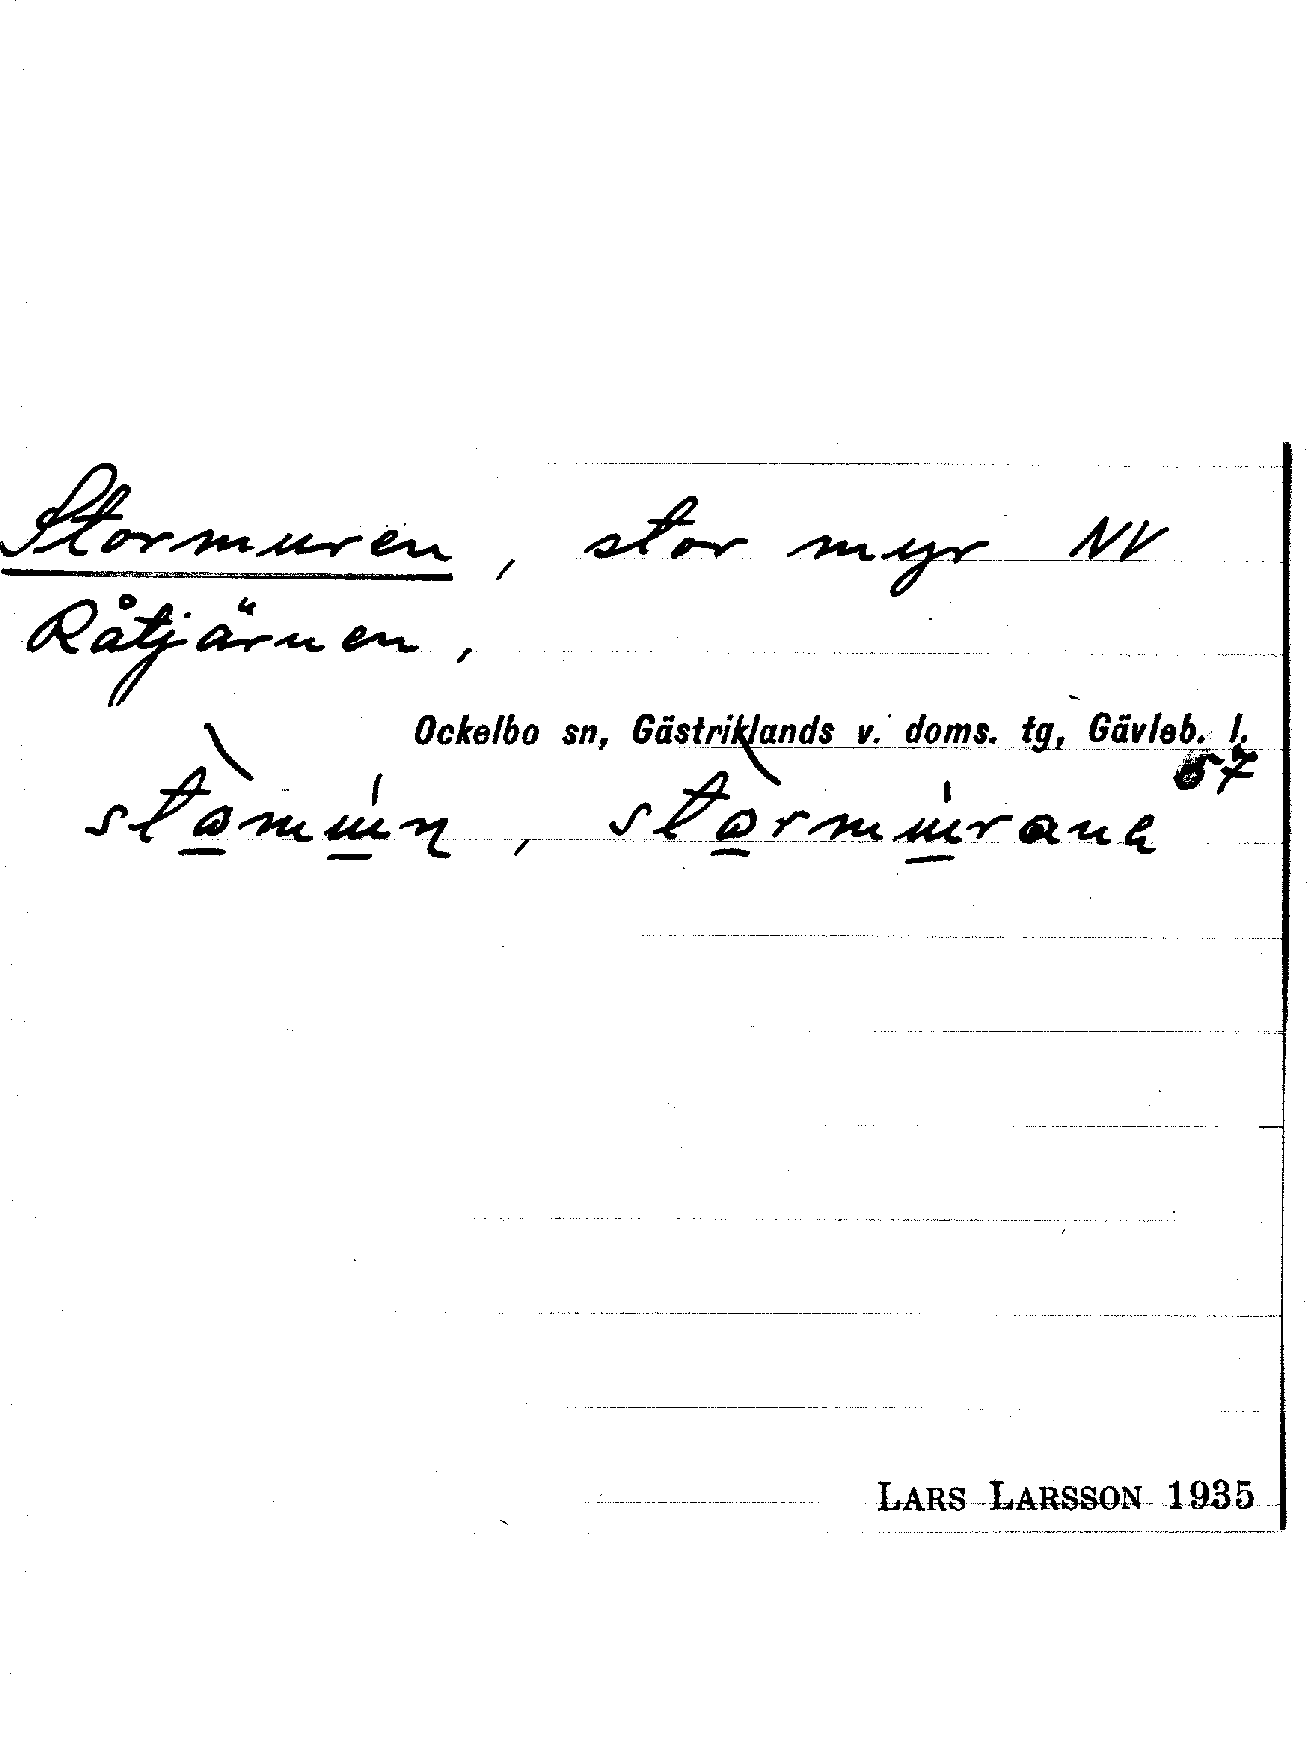 Stormuren, stor myr NV
Råtjärnen,
Ockelbo sn, Gästriklands v. doms. tg, Gävleb. l.
57
LARS LARSSON 1935